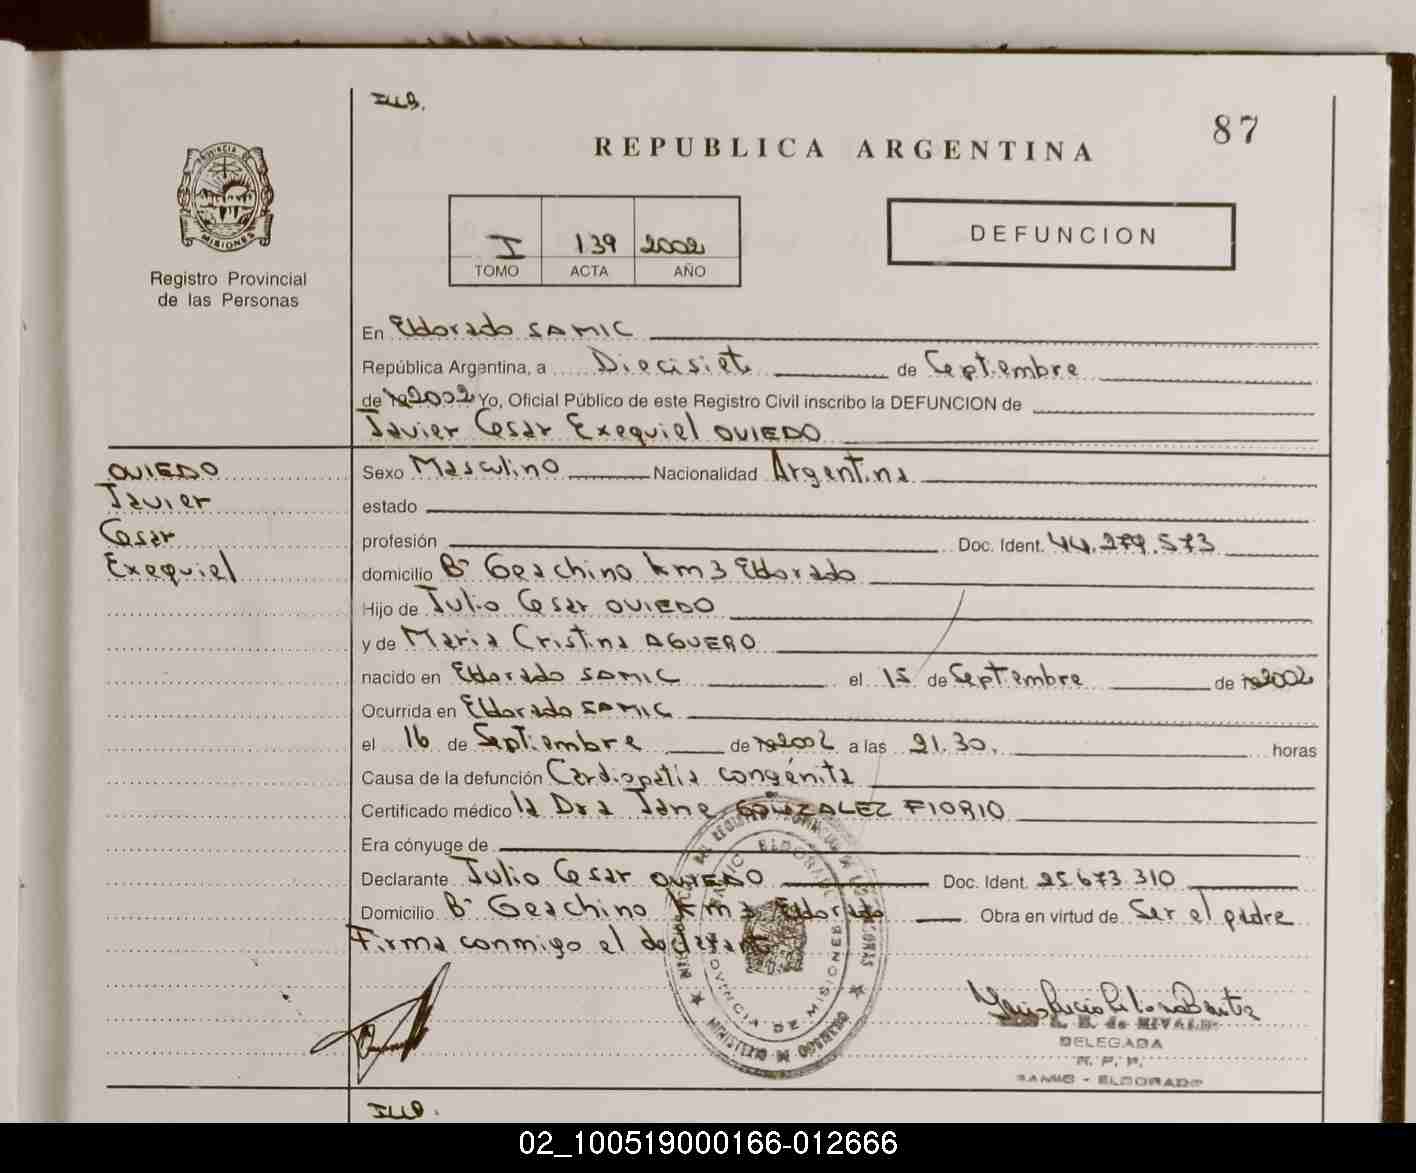 87
REPUBLICA ARGENTINA
PROVINCIA DE
MISIONES
Registro Provincial
de las Personas
I 139 2002
TOMO ACTA AÑO
DEFUNCION
En Eldorado SAMIC
República Argentina, a Diecisiete de Septiembre
de 2002 Yo, Oficial Público de este Registro Civil inscribo la DEFUNCION de
Javier Cesar Exequiel OVIEDO
OVIEDO
Javier
Cesar
Exequiel
Sexo Masculino Nacionalidad Argentina
estado
profesión Doc. Ident. 44.279.573
domicilio B° Geachino km 3 Eldorado
Hijo de Julio Cesar OVIEDO
y de Maria Cristina AGUERO
nacido en Eldorado SAMIC el 15 de Septiembre de 2002
Ocurrida en Eldorado SAMIC
el 16 de Septiembre de 2002 a las 21.30. horas
Causa de la defunción Cardiopatia congénita
Certificado médico la Dra Jane GONZALEZ FIORIO
Era cónyuge de
Declarante Julio Cesar OVIEDO Doc. Ident. 25.673.310
Domicilio B° Geachino km 3 Eldorado Obra en virtud de Ser el padre
Firma conmigo el declarante
PROVINCIA DE MISIONES
MINISTERIO DE GOBIERNO
DELEGADA
R. P. P.
SAMIC - ELDORADO
02_100519000166-012666